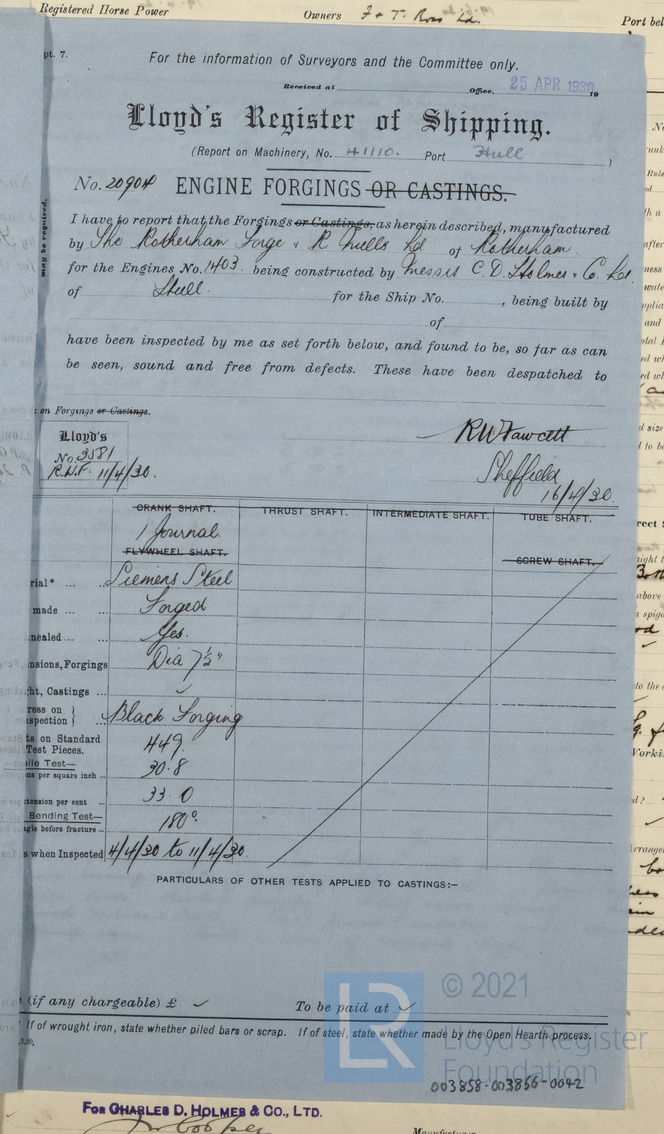 Registered Horse Power
Owners F & T. Ross Ld.
Port bel
pt. 7.
For the information of Surveyors and the Committee only.
Received at Office, 25 APR 1930 19
Lloyd's Register of Shipping.
(Report on Machinery, No. 41110. Port Hull )
No. 20904 ENGINE FORGINGS OR CASTINGS.
may be required.
I have to report that the Forgings or Castings, as herein described, manufactured
by The Rotherham Forge & R. Mills Ld of Rotherham
for the Engines No. 1403. being constructed by Messrs C. D. Holmes & Co. Ld.
of Hull. for the Ship No. , being built by
of
have been inspected by me as set forth below, and found to be, so far as can
be seen, sound and free from defects. These have been despatched to
on Forgings or Castings.
Lloyd's
No. 3581
R.W.F. 11/4/30.
RW Fawcett
Sheffield
16/4/30.
CRANK SHAFT. THRUST SHAFT. INTERMEDIATE SHAFT. TUBE SHAFT.
1 Journal.
FLYWHEEL SHAFT. SCREW SHAFT.
rial* ... ... Siemens Steel
made ... ... Forged
nealed ... ... Yes.
nsions, Forgings Dia 7½"
ht, Castings ... ✓
ress on
nspection } ... Black Forging
ts on Standard
Test Pieces. 449.
le Test—
ns per square inch ... 30.8
tension per cent ... 33.0
Bending Test—
gle before fracture ... 180°.
s when Inspected 4/4/30 to 11/4/30.
PARTICULARS OF OTHER TESTS APPLIED TO CASTINGS:—
(if any chargeable) £ ✓ To be paid at ✓
If of wrought iron, state whether piled bars or scrap. If of steel, state whether made by the Open Hearth process.
LR
© 2021
Lloyd's Register
Foundation
003858-003866-0042
FOR CHARLES D. HOLMES & CO., LTD.